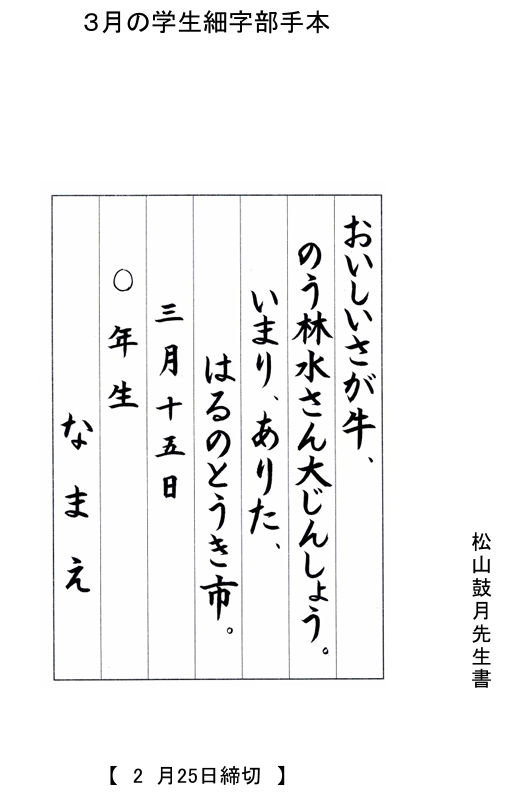 3月の学生細字部手本
おいしいさが牛、
のう林水さん大じんしょう。
いまり、ありた、
はるのとうき市。
三月十五日
〇年生
なまえ
松山鼓月先生書
【 2 月25日締切 】